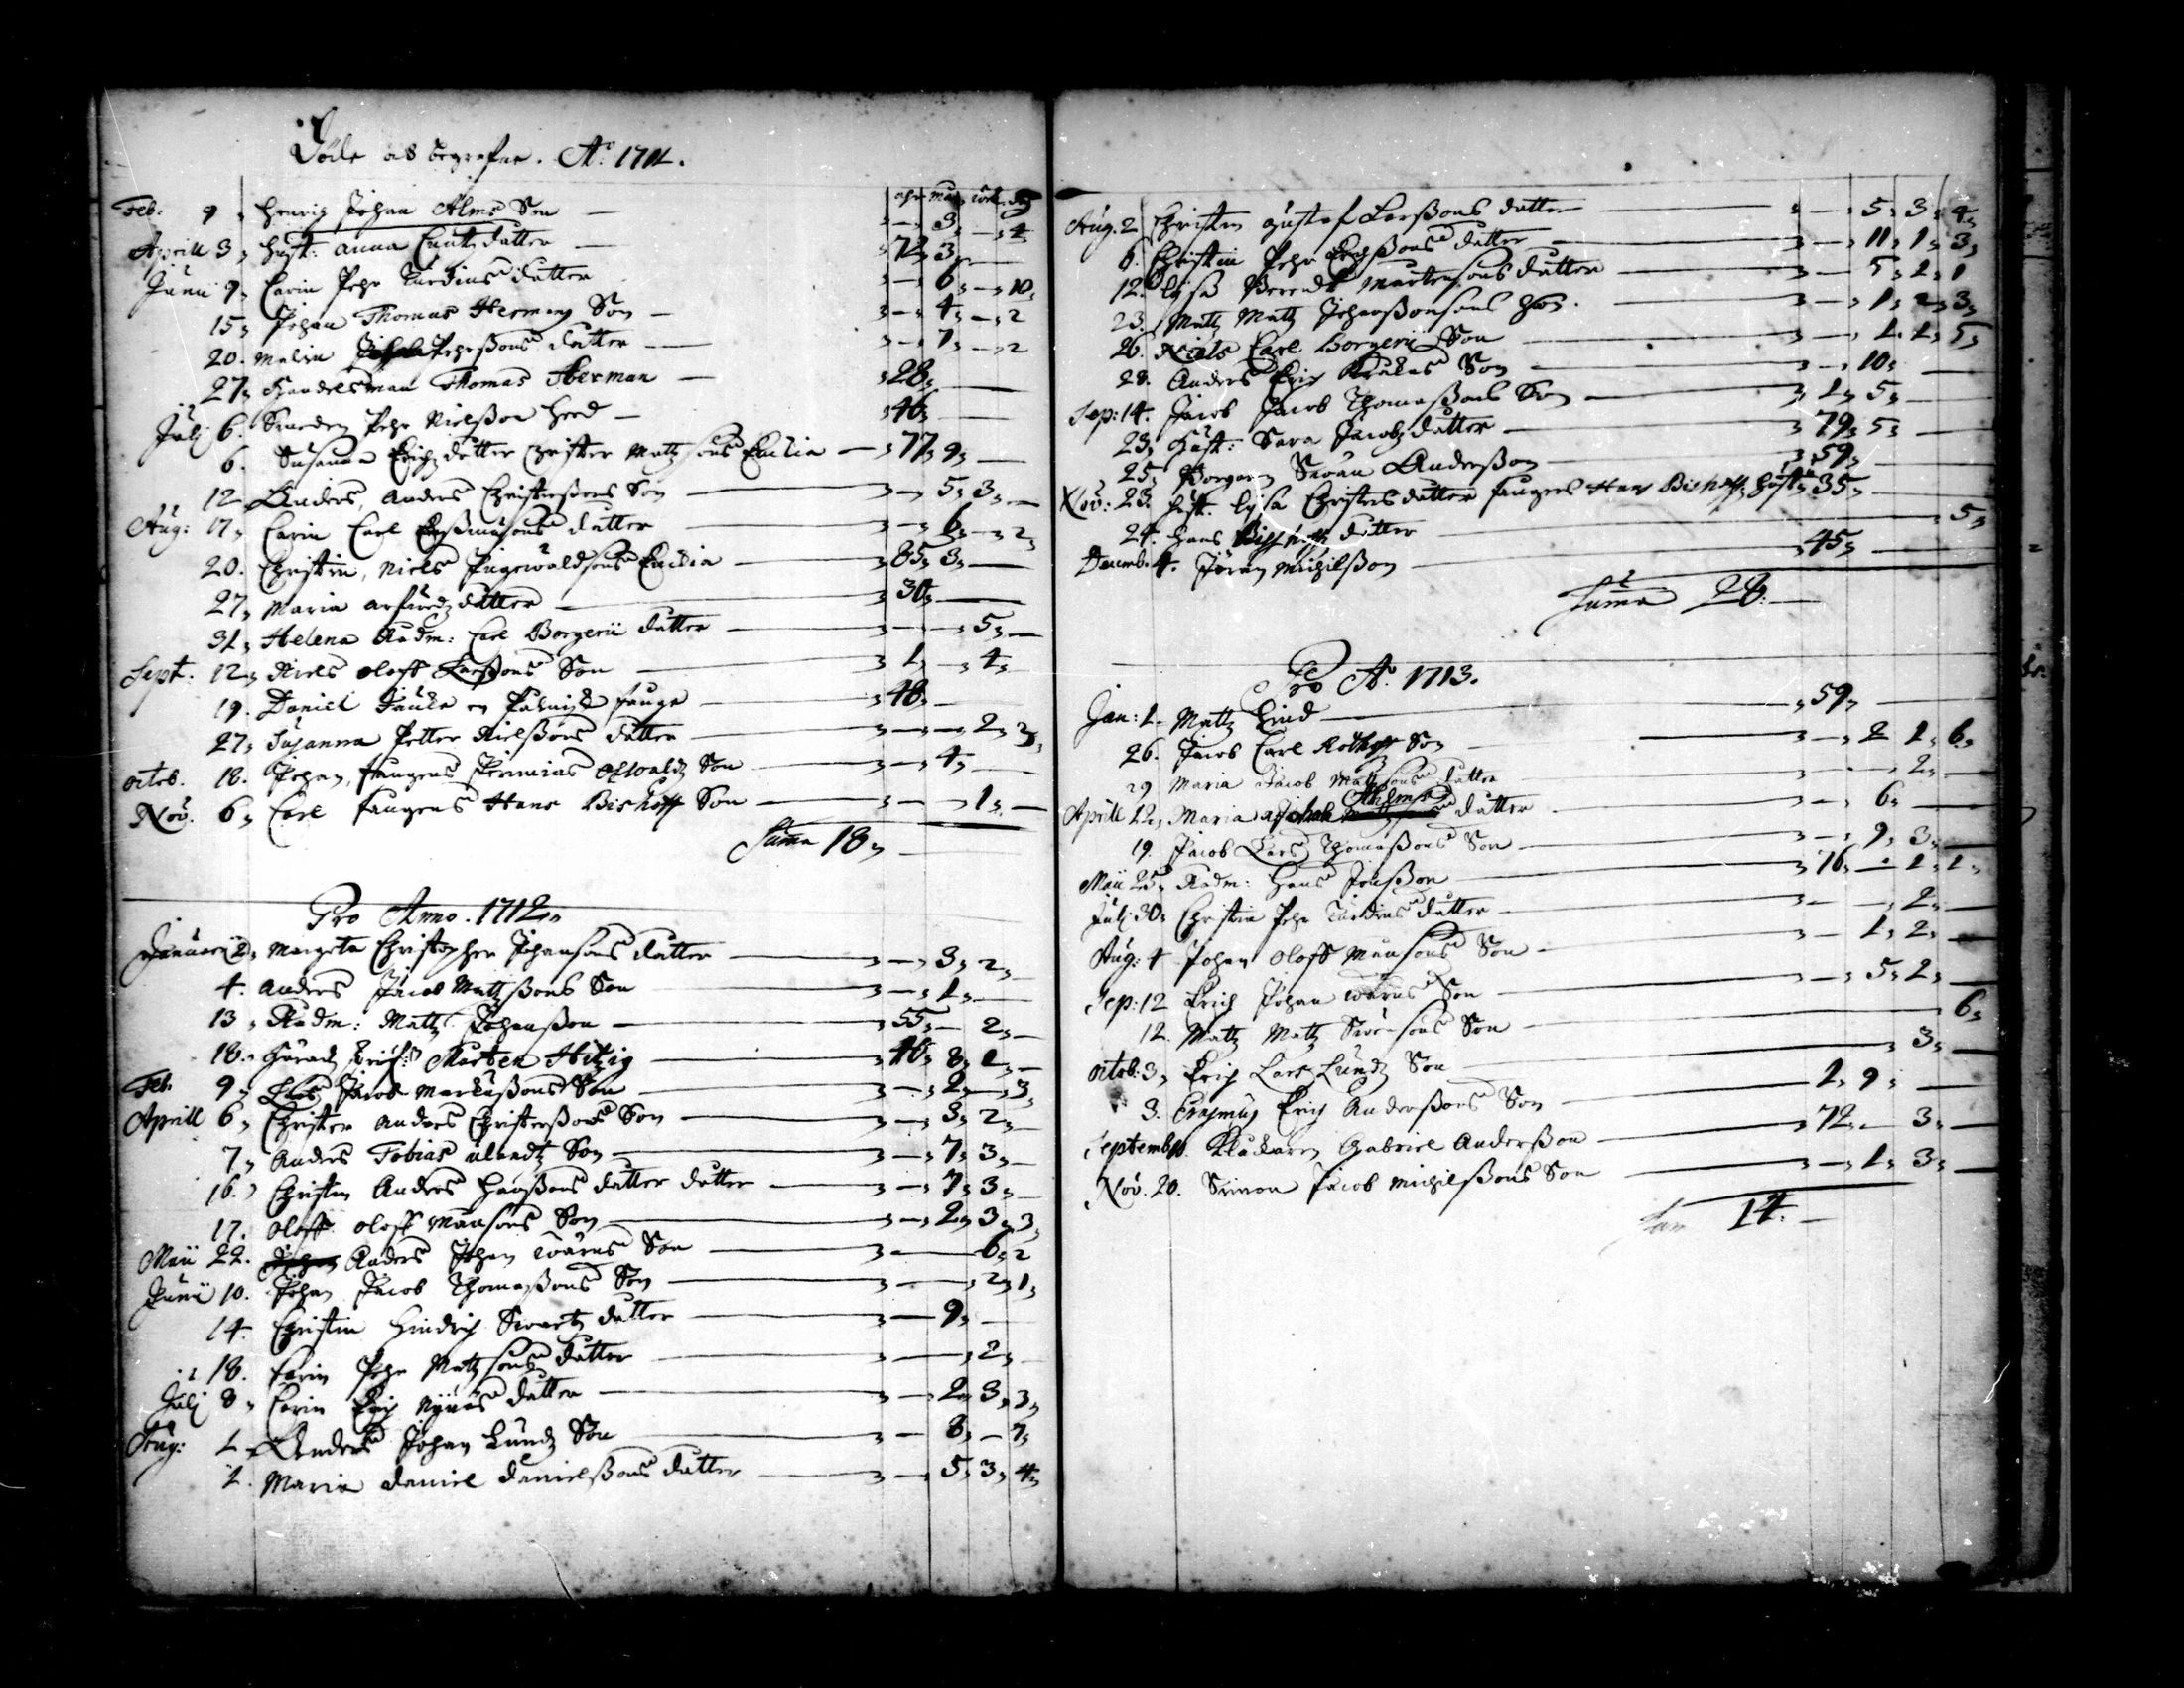 Döde och begrafne. A:o 1711.
åhr mån: wek: dag
Feb: 9 Henrich Johan Alms Son — 3 — 4
Aprill 3 Hust: Anna datter — 72 3
Junii 9 Carin Pehr Turdins datter — 6 — 10
15 Johan Thomas Hermans Son — 4 — 2
20. Malin Pehrßons datter — 7 — 2
27 Handelsman Thomas Herman — 28
Julj 6. Smeden Pehr Nielßon Hed — 46
6. Susanna Erichz datter Christer Matzsons Enckia — 77 9
12 Anders, Anders Christerßons Son — 5 3
Aug: 17 Carin Carl datter — 6 — 2
20. Christin, Niels Ingewaldsons Enckia — 85 3
27 Maria datter — 30
31 Helena Rådm: Carl Borgerii datter — 5
Sept. 12 Niels Oloff Larßons Son — 1 — 4
19. Daniel en fånge — 48
27 Susanna Petter Nielßons datter — 2 3
octob. 18. Johan, fångens Oswaldz Son — 4
Nov. 6 Carl fångens Hans Bishoff Son — 1
Summa 18
Pro Anno. 1712
Januarii 2 Margeta Christopher Johansons datter — 3 2
4. Anders Jacob Matzßons Son — 1
13 Rådm: Matz Johanßon — 55 — 2
18. Härads Skrif: Mårten Hitzig — 46 8 1
Feb 9 Jacob Markußons Son — 2 — 3
Aprill 6 Christer Anders Christerßons Son — 3 2
7 Anders Tobias Son — 7 3
16. Christin Anders Hanßons datter datter — 7 3
17. Oloff Oloff Månsons Son — 2 3 3
Maii 22. Anders Johan Wårns Son — 6 2
Junii 10. Johan Jacob Thomaßons Son — 2 1
14. Christin Hindrich Swartz datter — 9
18. Carin Pehr Matzsons datter — 2
Julj 8 Carin Erich datter — 2 3 3
Aug: 1 Anders Johan Lundz Son — 8 — 7
1. Maria Daniel Danielßons datter — 5 3 4
Aug. 2 Christin Gustaf Larßons datter — 5 3 4
6. Christin Pehr Erichßons datter — 11 1 3
12. Lisa Berendt Mårtensons datter — 5 2 1
23. Matz Matz Johanßonsons Son. — 1 2 3
26. Niels Carl Borgerii Son — 1 1 5
28. Anders Erich Son — 10
Sep: 14. Jacob Jacob Thomaßons Son — 1 5
23 Hust: Sara Jacobz datter — 79 5
25 Borgaren Swän Anderßon — 59
Nov: 23. Hust. Lisa Christersdatter fångens Hans Bishoff Hust — 35
24. Hans Bishoff datter — 5
Decemb. 4. Jöran Michilßon — 45
Summa 28.
Pro A:o 1713.
Jan: 1. Matz Hind — 59
26. Jacob Carl Rothoff Son — 2 1 6
29 Maria Jacob Mattzsons datter — 2
Aprill 12 Maria Johan Ahlms datter — 6
19. Jacob Lars Thomaßons Son — 9 3
Maii 25 Rådm: Hans Jonßon — 76 — 1 1
Julj 30 Christin Pehr Turdins datter — 2
Aug: 4 Johan Oloff Månsons Son — 1 2
Sep: 12 Erich Johan Wårns Son — 5 2
12. Matz Matz Swänsons Son — 6
octob: 3 Erich Lars Lundz Son — 3
3. Erasmus Erich Anderßons Son — 1 9
September Klåckaren Gabriel Anderßon — 72 — 3
Nov. 20. Simon Jacob Michilßons Son — 1 3
Sum 14.